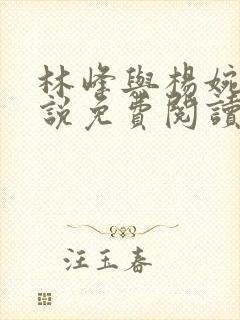 林峰與楊婉
說免費閱讀
汪玉春